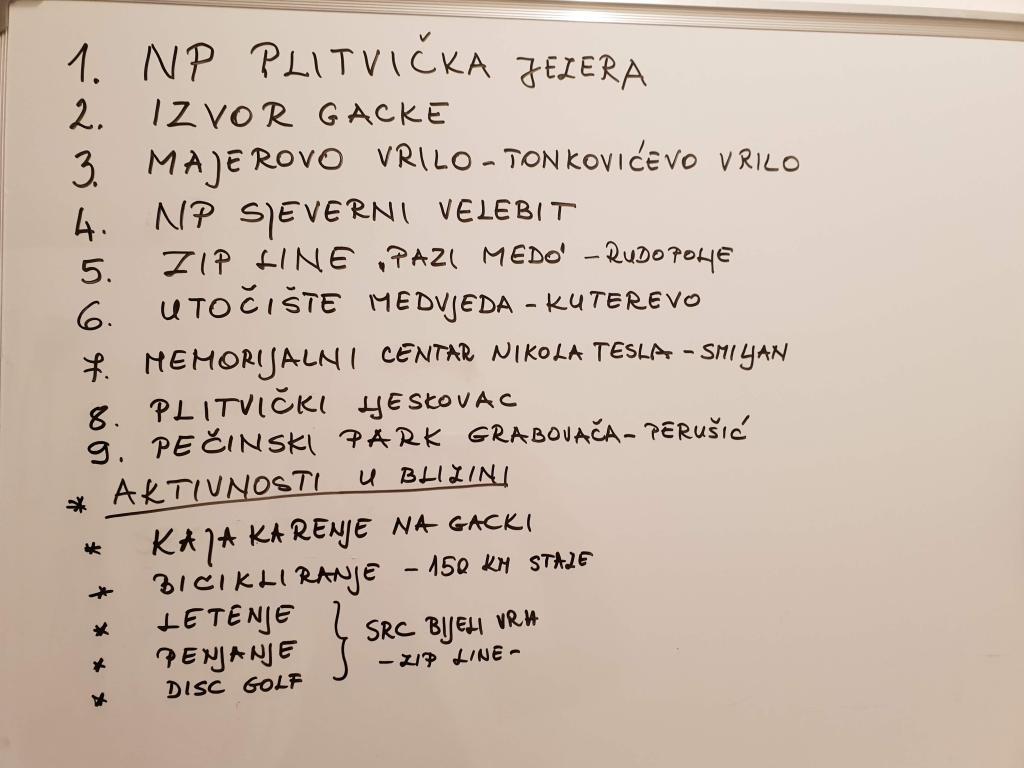 1. NP PLITVIČKA JEZERA
2. IZVOR GACKE
3. MAJEROVO VRILO - TONKOVIĆEVO VRILO
4. NP SJEVERNI VELEBIT
5. ZIP LINE "PAZI MEDO" - RUDOPOLJE
6. UTOČIŠTE MEDVJEDA - KUTEREVO
7. MEMORIJALNI CENTAR NIKOLA TESLA - SMILJAN
8. PLITVIČKI LJESKOVAC
9. PEČINSKI PARK GRABOVAČA - PERUŠIĆ
* AKTIVNOSTI U BLIZINI
* KAJAKARENJE NA GACKI
* BICIKLIRANJE - 150 KM STAZE
* LETENJE } SRC BIJELI VRH
* PENJANJE - ZIP LINE -
* DISC GOLF